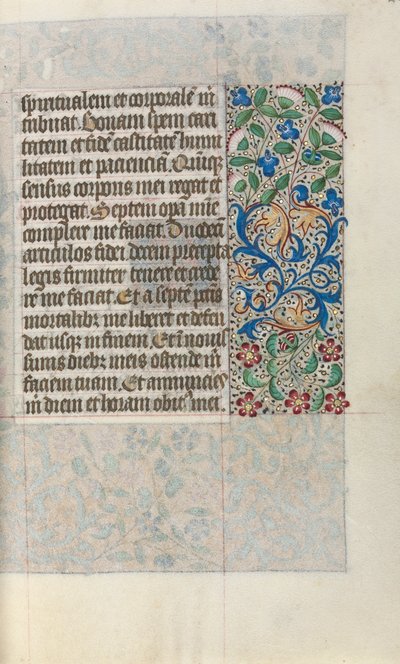 spiritualem et corporalē m̄
tribuat Bonam spem cari
tatem et fidē castitatē humi
litatem et pacienciā Quinq̄
sensus corporis mei regat et
protegat Septem opa
complere me faciat Duodeci
articulos fidei decem p̄cepta
legis firmiter tenere et crede
re me faciat Et a septē
mortalibꝫ me liberet et defen
dat usq̄ in finem Et ī novis
simis diebꝫ meis ostende m̄
faciem tuam Et annuncies
m̄ diem et horam obit᷒ mei